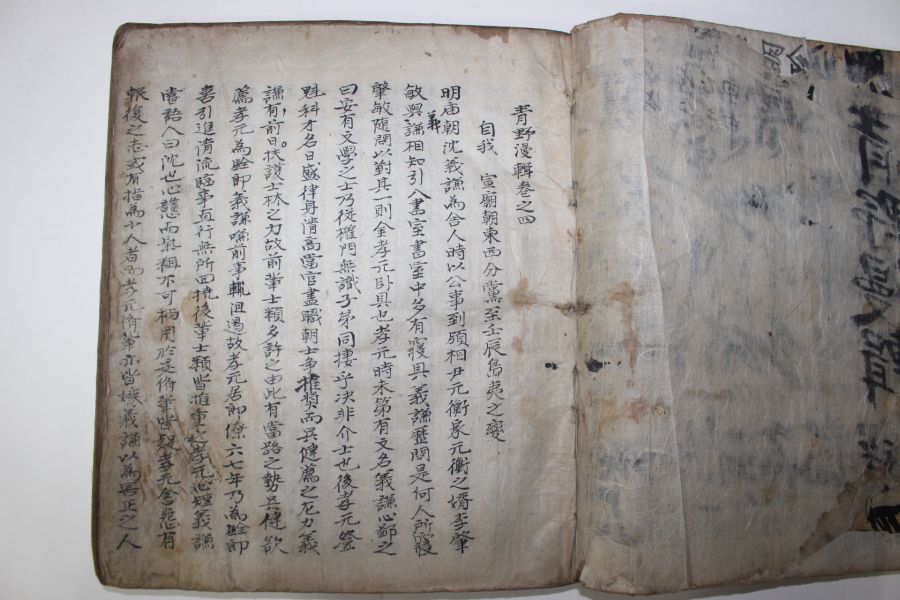 青野漫輯卷之四
自我 宣廟朝東西分黨至壬辰島夷之變
明庙朝沈義謙為舍人時以公事到領相尹元衡家元衡之婿李肇
敏與義謙相知引入書室書室中多有寢具義謙歷問是何人所寢
肇敏随問以對其一則金孝元卧具也孝元時未第有文名義謙心鄙之
曰安有文學之士乃從權門無識子弟同棲乎决非介士也後孝元登
魁科才名日盛律身清高當官盡職朝士争推奬而吳健薦之尤力義
謙有前日扶護士林之力故前軰士類多許之由此有當路之勢吳健欲
薦孝元為銓郎義謙嫌前事輒沮遏故孝元居郎僚六七年乃為銓郎
喜引進清流臨事直行無所回撓後軰士類皆推重之孝元心短義謙
嘗語人曰沈也心戇而氣粗不可柄用於是儕軰皆疑孝元含怨有
報復之志或有指為小人者而孝元儕軰亦皆嫉義謙以為害正之人
青